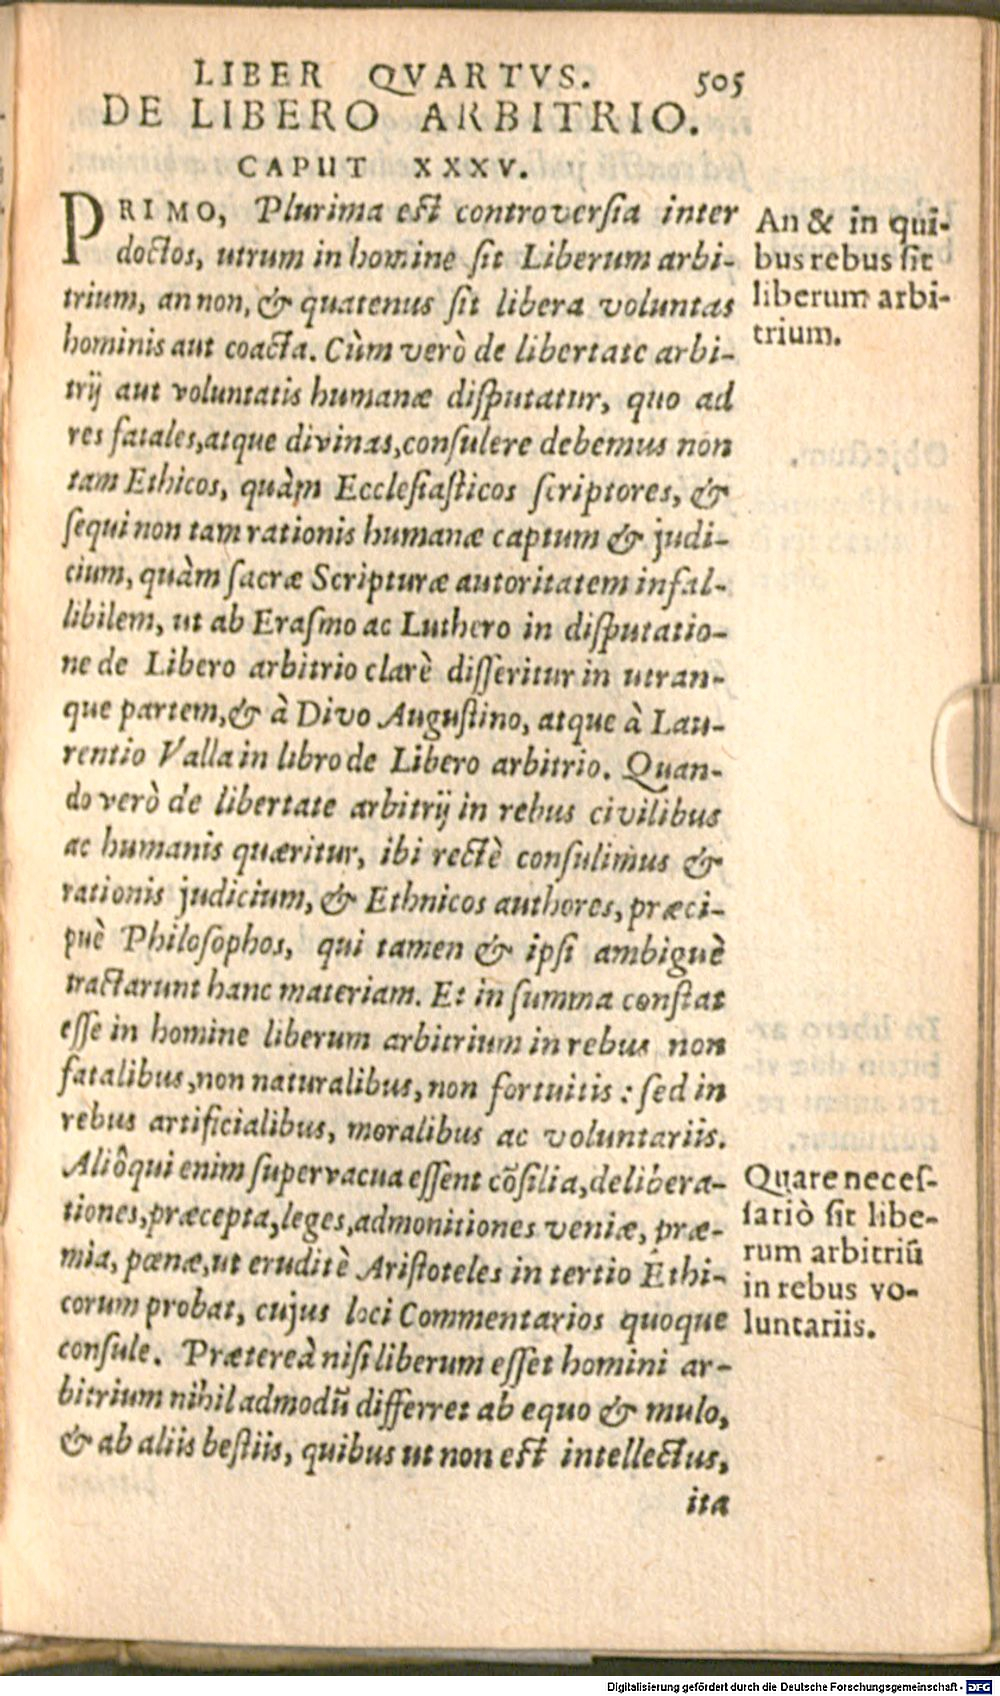 LIBER QVARTVS. 505
DE LIBERO ARBITRIO.
CAPUT XXXV.
PRIMO, Plurima est controversia inter
doctos, utrum in homine sit Liberum arbi-
trium, an non, & quatenus sit libera voluntas
hominis aut coacta. Cùm verò de libertate arbi-
trij aut voluntatis humanæ disputatur, quo ad
res fatales, atque divinas, consulere debemus non
tam Ethicos, quàm Ecclesiasticos scriptores, &
sequi non tam rationis humanæ captum & judi-
cium, quàm sacræ Scripturæ autoritatem infal-
libilem, ut ab Erasmo ac Luthero in disputatio-
ne de Libero arbitrio clarè disseritur in utran-
que partem, & à Divo Augustino, atque à Lau-
rentio Valla in libro de Libero arbitrio. Quan-
do verò de libertate arbitrij in rebus civilibus
ac humanis quæritur, ibi rectè consulimus &
rationis judicium, & Ethnicos authores, præci-
puè Philosophos, qui tamen & ipsi ambiguè
tractarunt hanc materiam. Et in summa constat
esse in homine liberum arbitrium in rebus non
fatalibus, non naturalibus, non fortuitis: sed in
rebus artificialibus, moralibus ac voluntariis.
Aliôqui enim supervacua essent cõsilia, delibera-
tiones, præcepta, leges, admonitiones veniæ, præ-
mia, pœnæ, ut eruditè Aristoteles in tertio Ethi-
corum probat, cujus loci Commentarios quoque
consule. Prætereà nisi liberum esset homini ar-
bitrium nihil admodũ differret ab equo & mulo,
& ab aliis bestiis, quibus ut non est intellectus,
ita
An & in qui-
bus rebus sit
liberum arbi-
trium.
Quare neces-
sariò sit libe-
rum arbitriũ
in rebus vo-
luntariis.
Digitalisierung gefördert durch die Deutsche Forschungsgemeinschaft - DFG